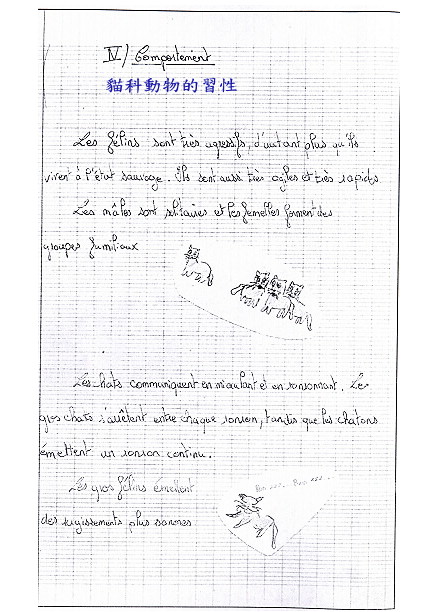 IV) Comportement
貓科動物的習性
Les félins sont très agressifs, d'autant plus qu'ils
vivent à l'état sauvage. Ils sont aussi très agiles et très rapides
Les mâles sont solitaires et les femelles forment des
groupes familiaux
Les chats communiquent en miaulant et en ronronnant. Les
gros chats s'arrêtent entre chaque ronron, tandis que les chatons
émettent un ronron continu.
Les gros félins émettent
des rugissements plus sonores